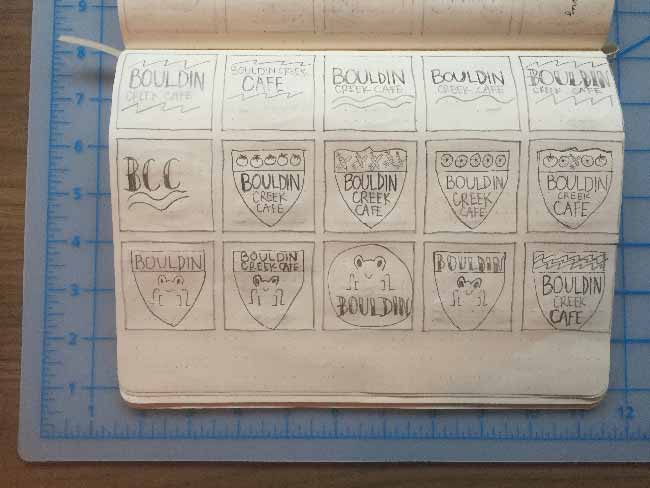 BOULDIN
CREEK CAFE
BOULDIN CREEK
CAFE
BOULDIN
CREEK CAFE
BOULDIN
CREEK CAFE
BOULDIN
CREEK CAFE
BCC
BOULDIN
CREEK
CAFE
BOULDIN
CREEK
CAFE
BOULDIN
CREEK
CAFE
BOULDIN
CREEK
CAFE
BOULDIN
BOULDIN
CREEK CAFE
BOULDIN
BOULDIN
BOULDIN
CREEK
CAFE
9
8
7
6
5
4
3
2
1
1
12